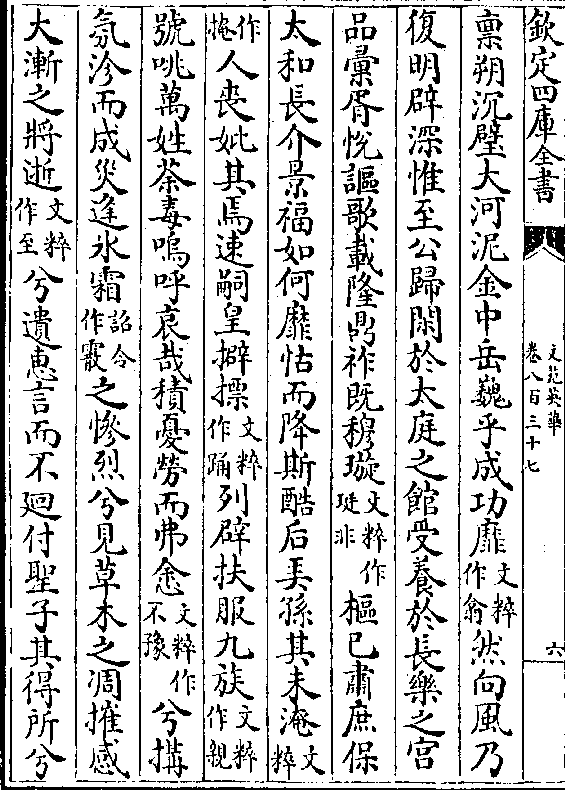 欽定四庫全書
文苑英華
卷八百三十七
六
禀朔沉璧大河泥金中岳巍乎成功靡文粹作翕然向風乃
復明辟深惟至公歸閑於太庭之館受養於長樂之宮
品彙胥悅謳歌載隆鼎祚既穆璇文粹作珽非樞已肅庶保
太和長介景福如何靡怙而降斯酷后弄孫其未淹文粹
作掩人喪妣其焉速嗣皇擗摽文粹作踊列辟扶服九族文粹作親
號咷萬姓荼毒嗚呼哀哉積憂勞而弗悆文粹作不豫兮搆
氛沴而成災逢氷霜詔令作霰之慘烈兮見草木之凋摧感
大漸之將逝文粹作至兮遺惠言而不廻付聖子其得所兮